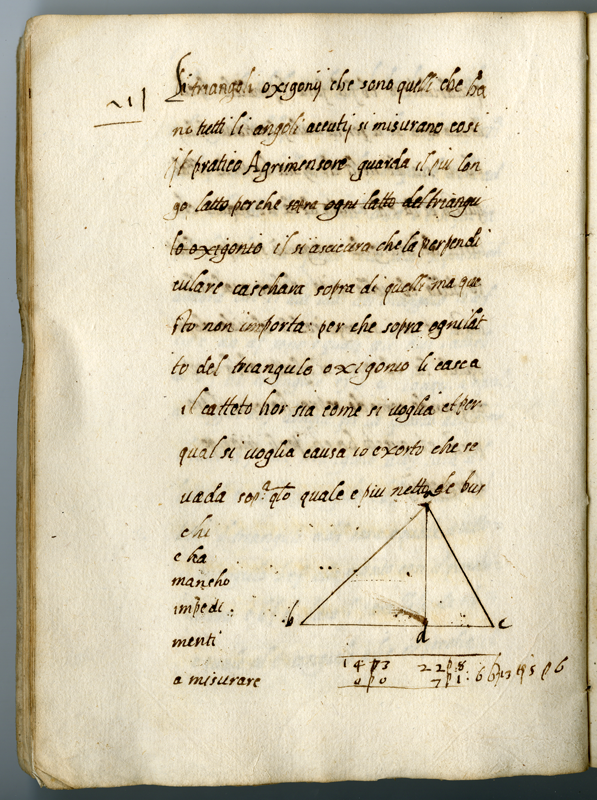 Li triangoli oxigonij che sono quelli che ha
no tutti li angoli accutij si misurano cosi
il pratico Agrimensore guarda il piu lon
go latto perche sopra ogni latto del triangu
lo oxigonio il si ascicura che la perpendi
culare caschara sopra di quelli ma que
sto non importa: per che sopra ogni lat
to del triangulo oxigonio li casca
il catteto hor sia come si voglia et per
qual si voglia causa io exorto che se
vada sop.ª q̃to quale e piu netto de bus
chi
e ha
mancho
impedi
menti
a misurare
b d c
14 p 3 22 p 8
0 p 0 7 p 1